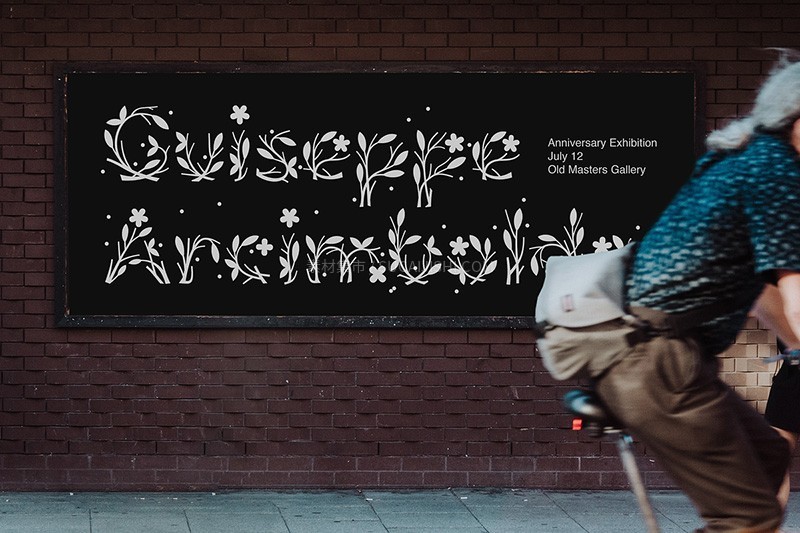 Guiseppe
Arcimboldo
Anniversary Exhibition
July 12
Old Masters Gallery